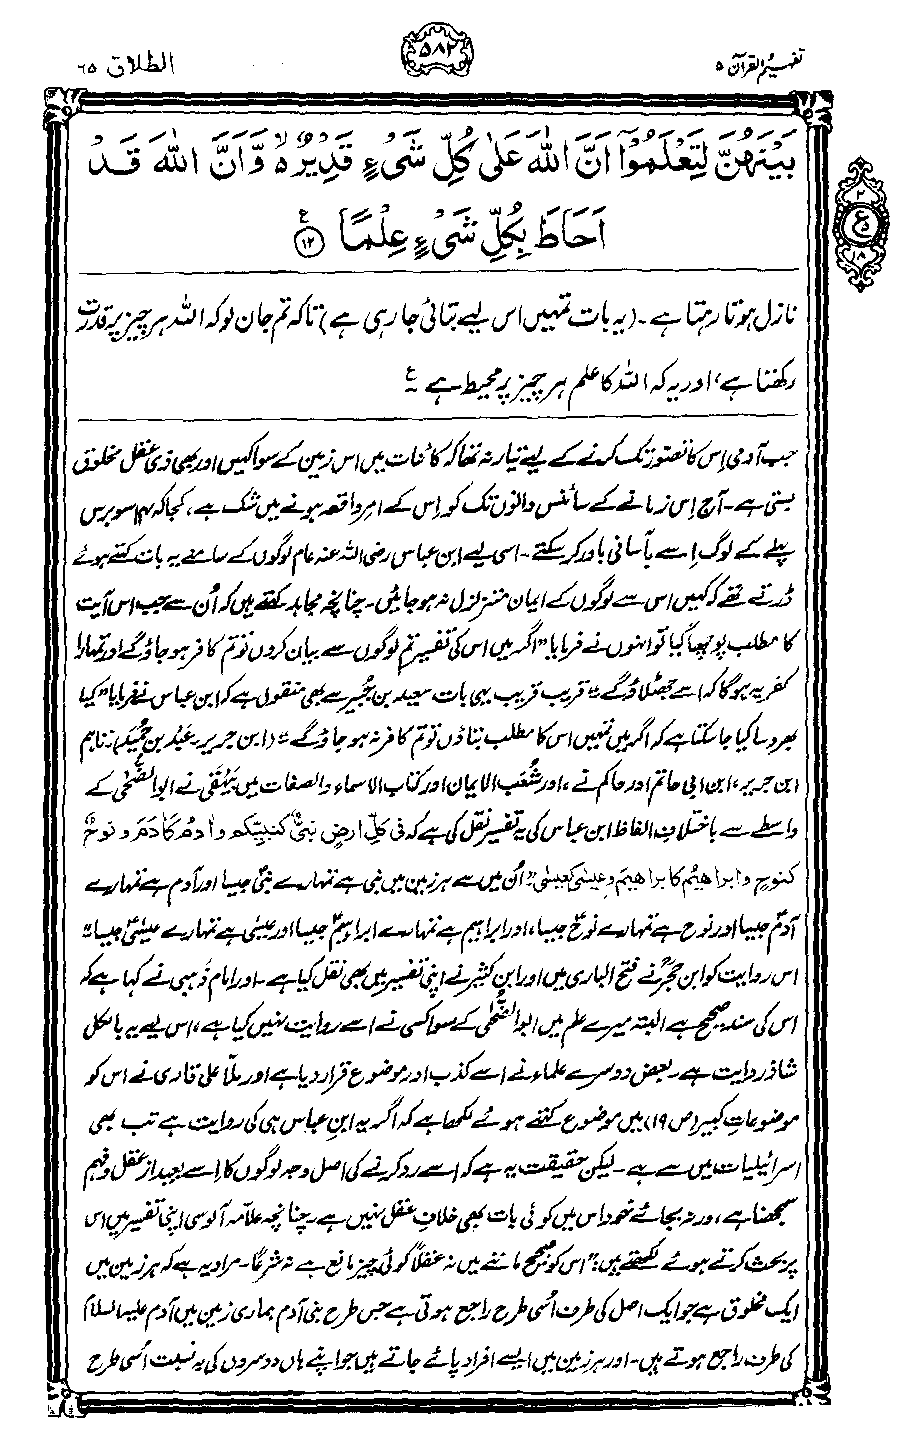 تفہیم القرآن ۵
۵۸۲
الطلاق ۶۵
بَيْنَهُنَّ لِتَعْلَمُوْٓا اَنَّ اللّٰهَ عَلٰى كُلِّ شَيْءٍ قَدِيْرٌ ۙ وَّاَنَّ اللّٰهَ قَدْ
اَحَاطَ بِكُلِّ شَيْءٍ عِلْمًا ۝۱۲ ع
۲
ع
۱۸
نازل ہوتا رہتا ہے۔ (یہ بات تمہیں اس لیے بتائی جا رہی ہے) تاکہ تم جان لو کہ اللہ ہر چیز پر قدرت
رکھتا ہے، اور یہ کہ اللہ کا علم ہر چیز پر محیط ہے ۔ ع
جب آدمی اِس کا تصوّر تک کرنے کے لیے تیار نہ تھا کہ کائنات میں اس زمین کے سوا کہیں اور بھی ذی عقل مخلوق
بستی ہے۔ آج اِس زمانے کے سائنس دانوں تک کو اِس کے امرِ واقعہ ہونے میں شک ہے، کجا کہ ۱۴ سو برس
پہلے کے لوگ اِسے بآسانی باور کر سکتے۔ اسی لیے ابن عباس رضی اللہ عنہ عام لوگوں کے سامنے یہ بات کہتے ہوئے
ڈرتے تھے کہ کہیں اس سے لوگوں کے ایمان متزلزل نہ ہو جائیں۔ چنانچہ مجاہد کہتے ہیں کہ اُن سے جب اس آیت
کا مطلب پوچھا گیا تو انہوں نے فرمایا "اگر میں اس کی تفسیر تم لوگوں سے بیان کروں تو تم کافر ہو جاؤ گے اور تمہارا
کفر یہ ہوگا کہ اسے جھٹلاؤ گے"۔ قریب قریب یہی بات سعید بن جُبیر سے بھی منقول ہے کہ ابن عباس نے فرمایا "کیا
بھروسا کیا جا سکتا ہے کہ اگر میں تمہیں اس کا مطلب بتاؤں تو تم کافر نہ ہو جاؤ گے"۔ (ابن جریر۔ عبد بن حُمید) تاہم
ابن جریر، ابن ابی حاتم اور حاکم نے، اور شُعَب الایمان اور کتاب الاسماء والصفات میں بَیہَقی نے ابوالضُّحٰی کے
واسطے سے باختلافِ الفاظ ابن عباس کی یہ تفسیر نقل کی ہے کہ فی کلِّ ارضٍ نبیٌّ کنبیِّکم و اٰدمُ کَاٰدَمَ و نوحٌ
کنوحٍ و ابراھیمُ کابراھیمَ و عیسٰی کعیسٰی۔ "اُن میں سے ہر زمین میں نبی ہے تمہارے نبیؐ جیسا اور آدم ہے تمہارے
آدمؑ جیسا اور نوح ہے تمہارے نوحؑ جیسا، اور ابراہیم ہے تمہارے ابراہیمؑ جیسا اور عیسٰی ہے تمہارے عیسٰیؑ جیسا"۔
اس روایت کو ابن حجرؒ نے فتح الباری میں اور ابن کثیرؒ نے اپنی تفسیر میں بھی نقل کیا ہے۔ اور امام ذَہبی نے کہا ہے کہ
اس کی سند صحیح ہے البتہ میرے علم میں ابوالضُّحٰی کے سوا کسی نے اسے روایت نہیں کیا ہے، اس لیے یہ بالکل
شاذ روایت ہے۔ بعض دوسرے علماء نے اسے کذب اور موضوع قرار دیا ہے اور ملّا علی قاری نے اس کو
موضوعاتِ کبیر (ص ۱۹) میں موضوع کہتے ہوئے لکھا ہے کہ اگر یہ ابن عباس ہی کی روایت ہے تب بھی
اسرائیلیات میں سے ہے۔ لیکن حقیقت یہ ہے کہ اسے رد کرنے کی اصل وجہ لوگوں کا اِسے بعید از عقل و فہم
سمجھنا ہے، ورنہ بجائے خود اس میں کوئی بات بھی خلافِ عقل نہیں ہے۔ چنانچہ علّامہ آلوسی اپنی تفسیر میں اس
پر بحث کرتے ہوئے لکھتے ہیں: "اس کو صحیح ماننے میں نہ عقلًا کوئی چیز مانع ہے نہ شرعًا۔ مراد یہ ہے کہ ہر زمین میں
ایک مخلوق ہے جو ایک اصل کی طرف اُسی طرح راجع ہوتی ہے جس طرح بنی آدم ہماری زمین میں آدم علیہ السلام
کی طرف راجع ہوتے ہیں۔ اور ہر زمین میں ایسے افراد پائے جاتے ہیں جو اپنے ہاں دوسروں کی بہ نسبت اُسی طرح